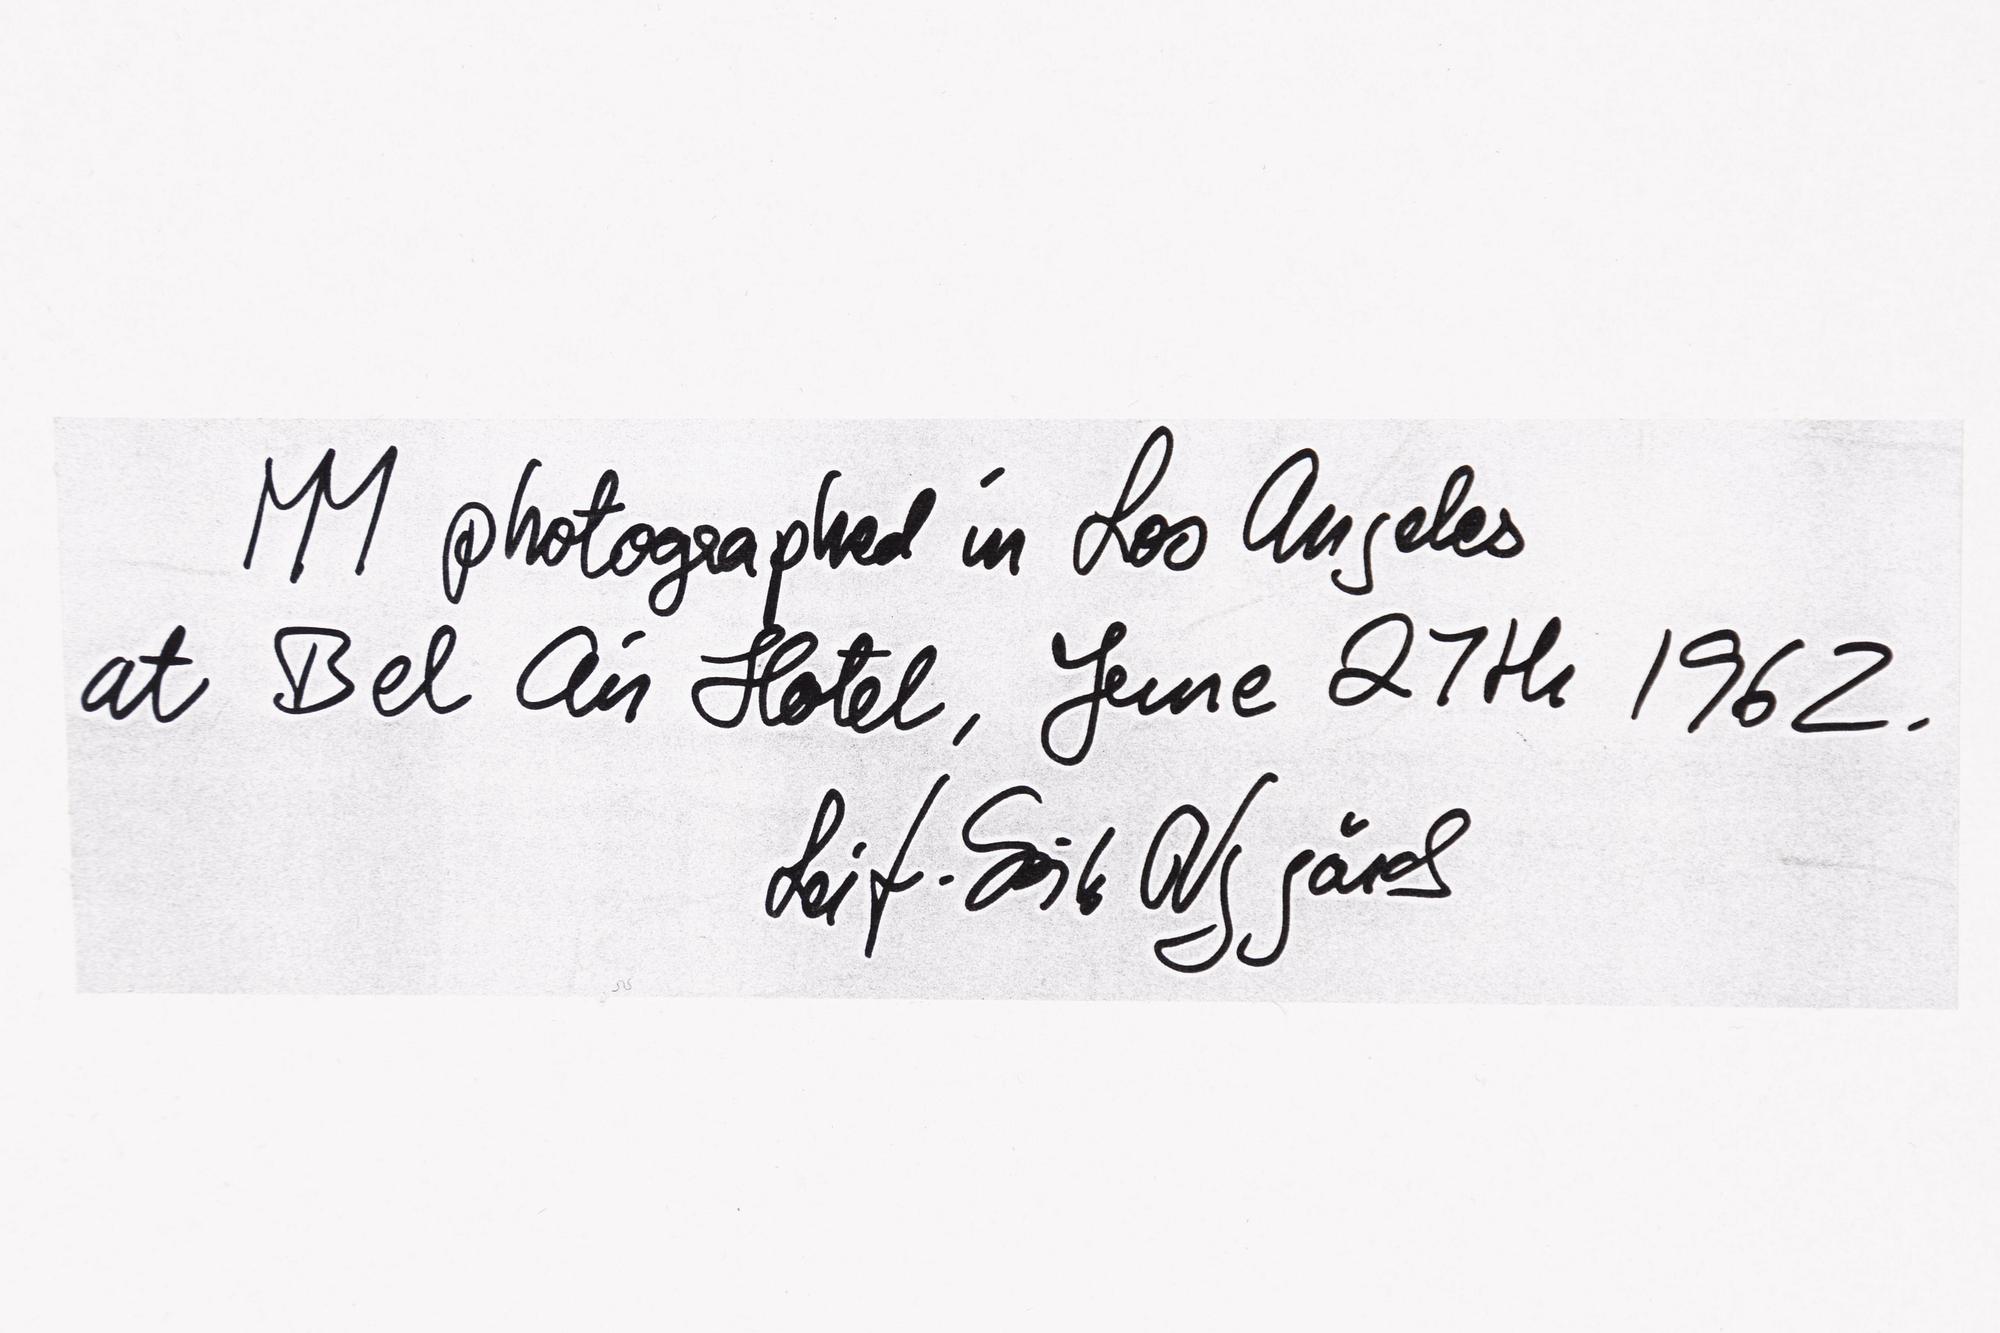 MM photographed in Los Angeles
at Bel Air Hotel, June 27th 1962.
Leif-Erik Nygårds